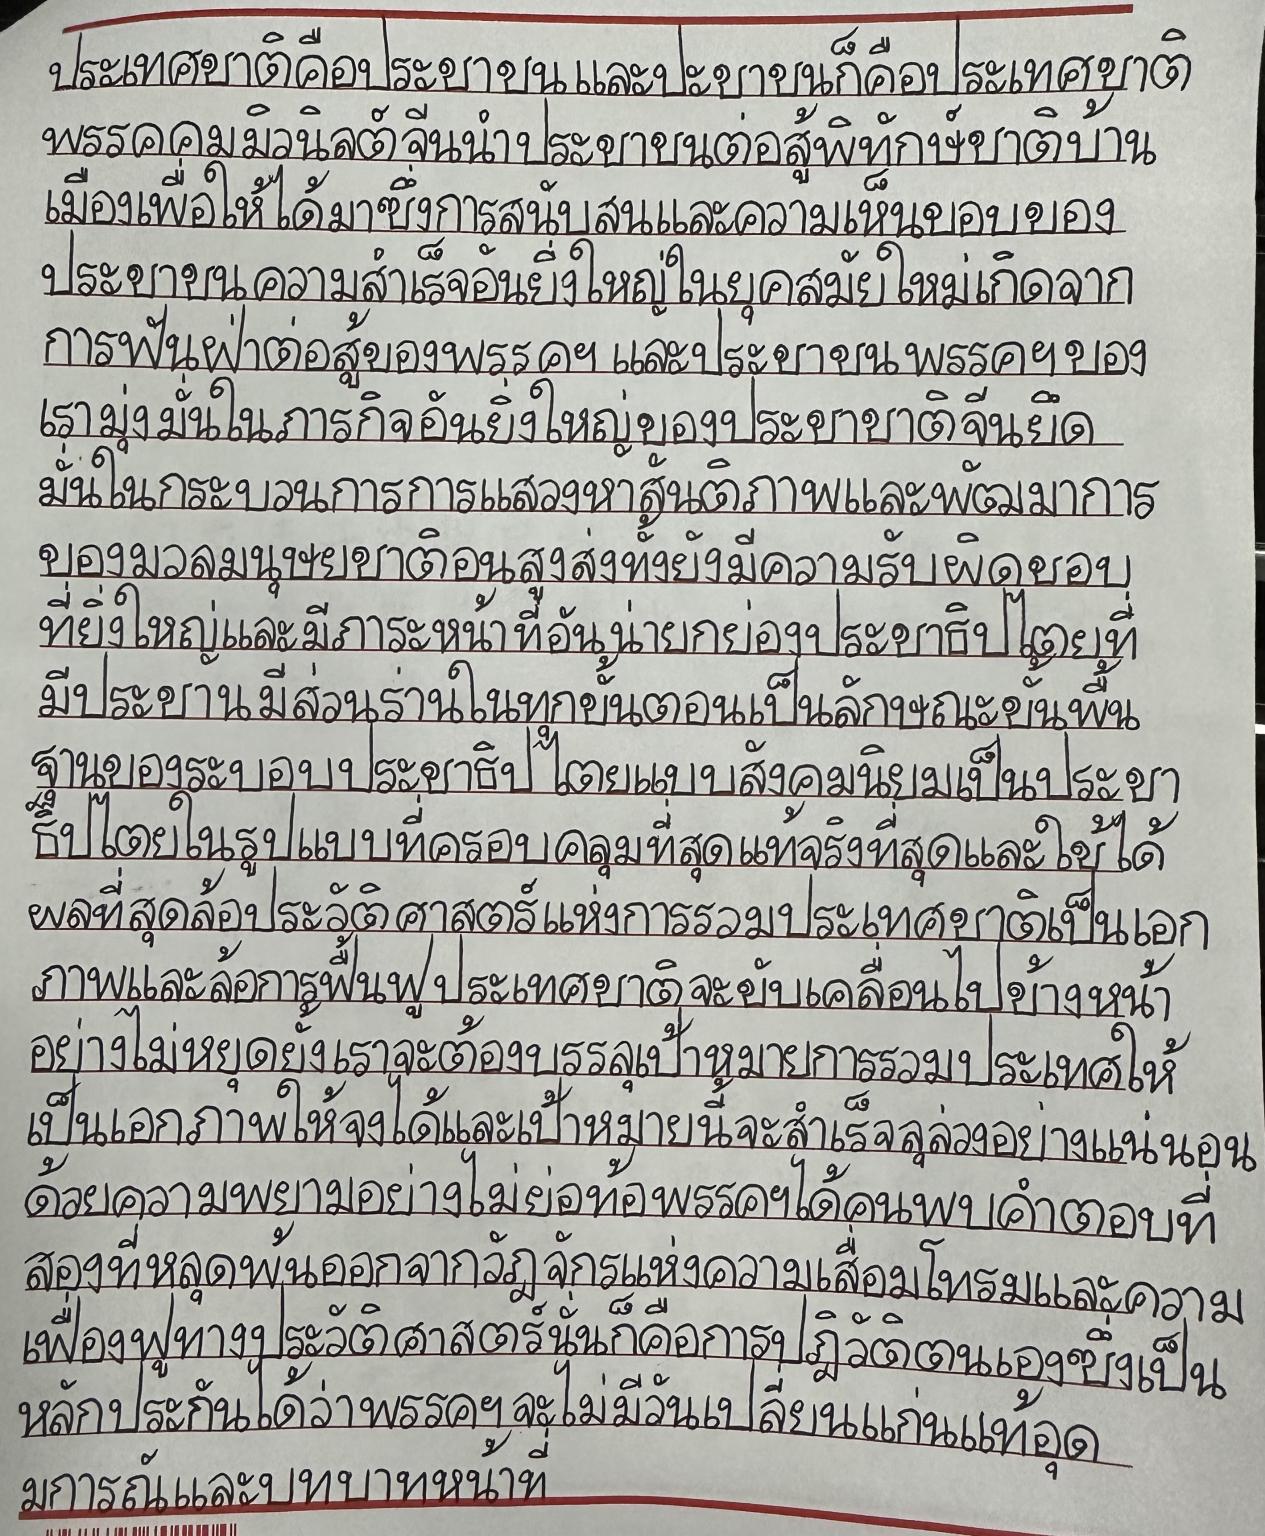 ประเทศชาติคือประชาชนและปะชาชนก็คือประเทศชาติ
พรรคคมมิวนิลต์จีนนำประชาชนต่อสู้พิทักษ์ชาติบ้าน
เมืองเพื่อให้ได้มาซึ่งการสนับสนและความเห็นชอบของ
ประชาชนความสำเร็จอันยิ่งใหญ่ในยุคสมัยใหม่เกิดจาก
การฟันฝ่าต่อสู้ของพรรคฯ และประชาชนพรรคฯของ
เรามุ่งมั่นในภารกิจอันยิ่งใหญ่ของประชาชาติจีนยึด
มั่นในกระบวนการการแสวงหาสันติภาพและพัฒมาการ
ของมวลมนุษยชาติอนสูงส่งทั้งยังมีความรับผิดชอบ
ที่ยิ่งใหญ่และมีภาระหน้าที่อันน่ายกย่องประชาธิปไตยที่
มีประชานมีส่วนร่านในทุกขั้นตอนเป็นลักษณะขั้นพื้น
ฐานของระบอบประชาธิปไตยแบบสังคมนิยมเป็นประชา
ธิปไตยในรูปแบบที่ครอบคลุมที่สุดแท้จริงที่สุดและใช้ได้
ผลที่สุดล้อประวัติศาสตร์แห่งการรวมประเทศชาติเป็นเอก
ภาพและล้อการฟื้นฟูประเทศชาติจะขับเคลื่อนไปข้างหน้า
อย่างไม่หยุดยั้งเราจะต้องบรรลุเป้าหมายการรวมประเทศให้
เป็นเอกภาพให้จงได้และเป้าหมายนี้จะสำเร็จลุล่วงอย่างแน่นอน
ด้วยความพยามอย่างไม่ย่อท้อพรรคฯได้คนพบคำตอบที่
สองที่หลุดพ้นออกจากวัฏจักรแห่งความเสื่อมโทรมและความ
เฟื่องฟูทางประวัติศาสตร์นั่นก็คือการปฏิวัติตนเองซึ่งเป็น
หลักประกันได้ว่าพรรคฯจะไม่มีวันเปลี่ยนแก่นแท้อุด
มการณ์และบทบาทหน้าที่